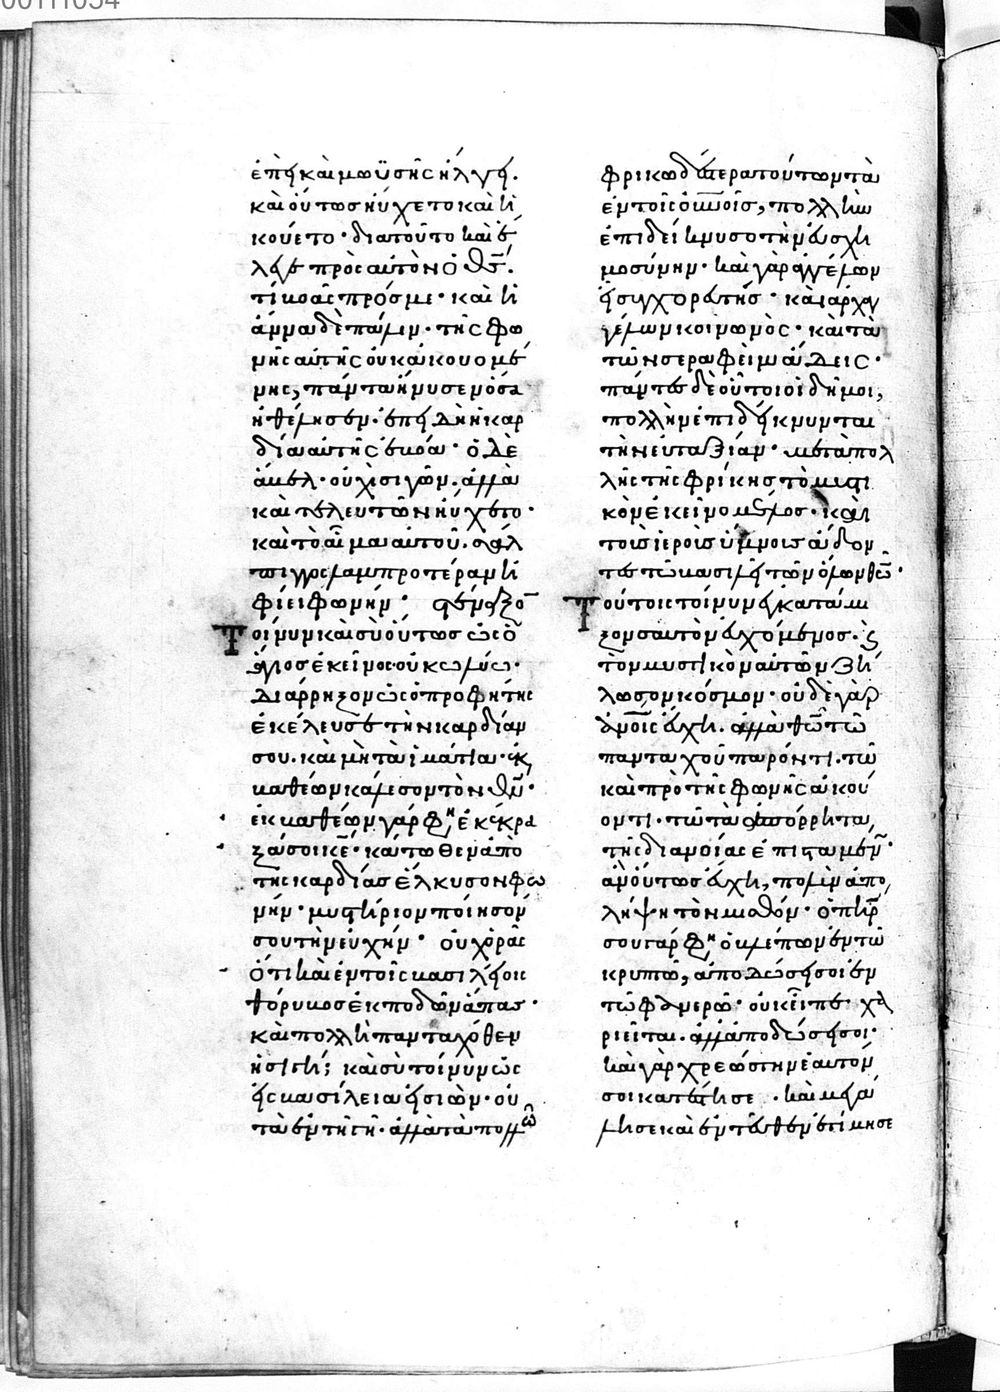 ἐπεὶ καὶ μωϋσῆς ἤλγει.
καὶ οὕτως ηὔχετο καὶ ἠ
κούετο· διὰ τοῦτο καὶ ἔ
λεγε πρὸς αὐτὸν ὁ θς̅.
τί βοᾶς πρός με· καὶ ἡ
ἄννα δὲ πάλιν· τῆς φω
νῆς αὐτῆς οὐκ ἀκουομέ
νης, πάντα ἤνυσεν ὅσα
ἠθέλησεν· ἐπειδὴ ἡ καρ
δία αὐτῆς ἐβόα· ὁ δὲ
ἄβελ· οὐχὶ σιγῶν· ἀλλὰ
καὶ τελευτῶν ηὔχετο·
καὶ τὸ αἷμα αὐτοῦ· σάλ
πιγγος λαμπροτέραν ἠ
φίει φωνήν· στέναξο
Τοίνυν καὶ σὺ οὕτως ὡς ὁ
ἅγιος ἐκεῖνος οὐ κωλύω·
Διάρρηξον ὡς ὁ προφήτης
ἐκέλευσε τὴν καρδίαν
σου. καὶ μὴ τὰ ἱμάτια· ἐκ
βαθέων κάλεσον τὸν θν̅·
ἐκ βαθέων γάρ φη ἐκέκρα
ξά σοι κε̅· κάτωθεν ἀπὸ
τῆς καρδίας ἕλκυσον φω
νήν· μυστήριον ποίησόν
σου τὴν εὐχήν· οὐχ ὁρᾶς
ὅτι καὶ ἐν τοῖς βασιλείοις
θόρυβος ἐκποδὼν ἅπας·
καὶ πολλὴ πανταχόθεν
ἡ σιγή; καὶ σὺ τοίνυν ὡς
εἰς βασίλεια εἰσιών· οὐ
τὰ ἐν τῇ γῇ· ἀλλὰ τὰ πολλῷ
φρικωδέστερα τούτων τὰ
ἐν τοῖς οὐνοῖς, πολλὴν
ἐπιδείκνυσο τὴν εὐσχη
μοσύνην· καὶ γὰρ ἀγγέλων
εἶ συγχορευτής· καὶ ἀρχαγ
γέλων κοινωνὸς· καὶ μετὰ
τῶν σεραφεὶμ ἄδεις·
πάντες δὲ οὗτοι οἱ δῆμοι,
πολλὴν ἐπιδείκνυνται
τὴν εὐταξίαν· μετὰ πολ
λῆς τῆς φρίκης τὸ μυστι
κὸν ἐκεῖνο μέλος· καὶ
τοὺς ἱεροὺς ὕμνους ἄδον
τες τῶ βασιλεῖ τῶν ὅλων θεῶ·
Τούτοις τοίνυν ἐγκατάμι
ξον σαυτὸν εὐχόμενος· ϗ
τὸν μυστικὸν αὐτῶν ζή
λωσον κόσμον· οὐδὲ γὰρ
ἀνοις εὔχη. ἀλλὰ θω̅ τῶ
πανταχοῦ παρόντι· τῶ
καὶ πρὸ τῆς φωνῆς ἀκού
οντι· τῶ τὰ ἀπόρρητα
τῆς διανοίας ἐπισταμένω·
ἂν οὕτως εὔχη, πολὺν ἀπο
λήψη τὸν μισθόν· ὁ πηρ̅
σου γάρ φη ὁ βλέπων ἐν τῶ
κρυπτῶ, ἀποδώσει σοι ἐν
τῶ φανερῶ· οὐκ εἶπε· χα
ριεῖται. ἀλλ' ἀποδώσει σοι·
καὶ γὰρ χρεώστην ἑαυτόν
σοι κατέστησε. καὶ μεγά
λη σε καὶ ἐντεῦθεν ἐτίμησε